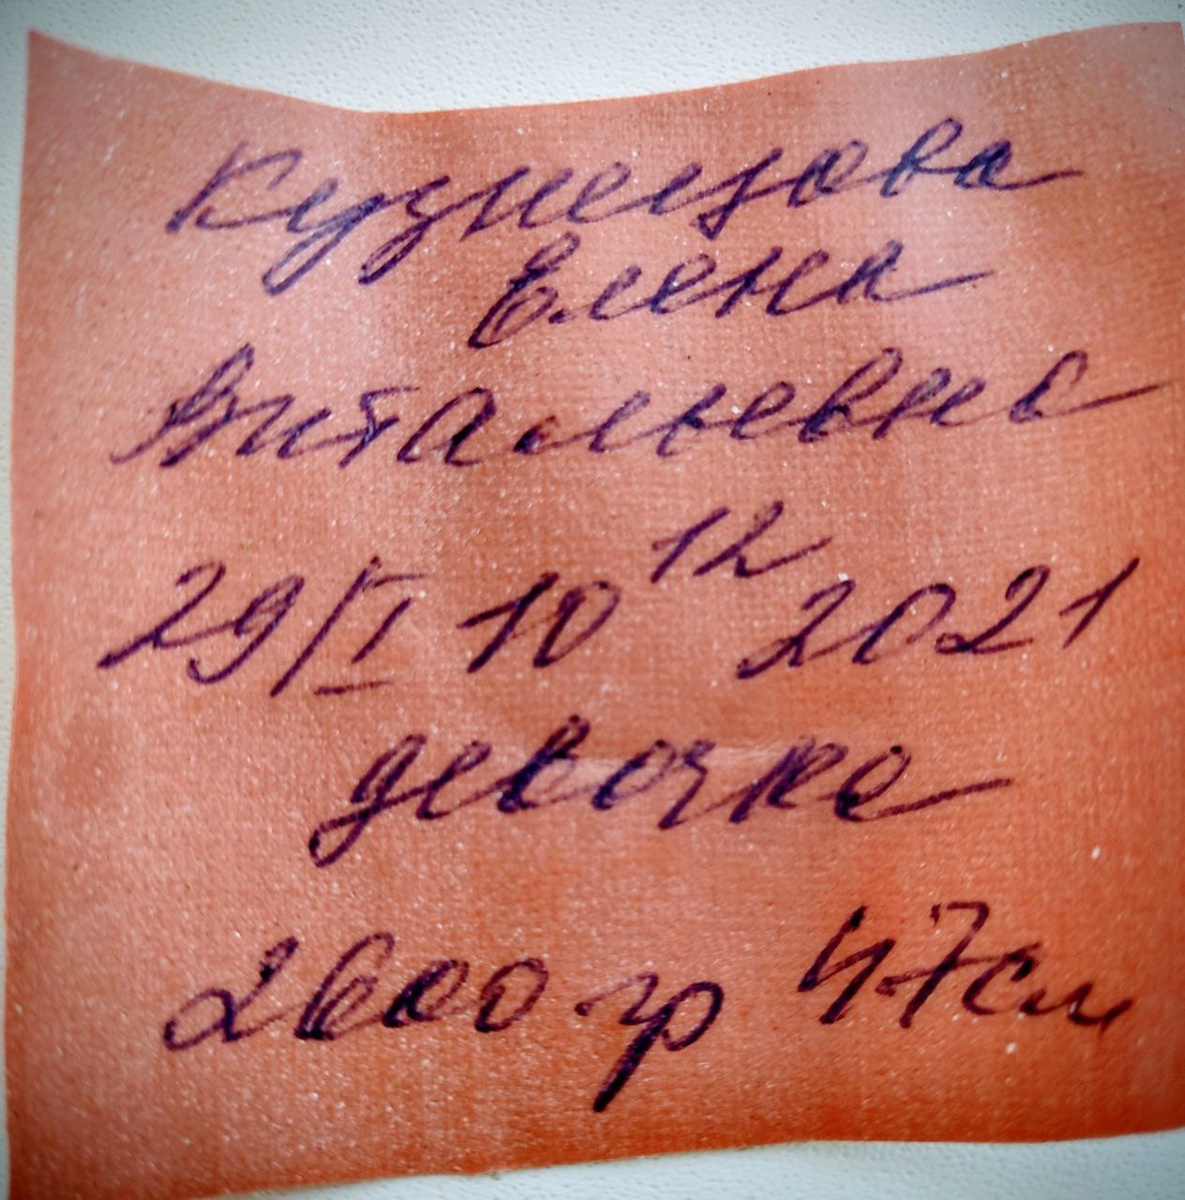 Кузнецова
Елена
Витальевна
29/I 10¹² 2021
девочка
2600 гр 47см